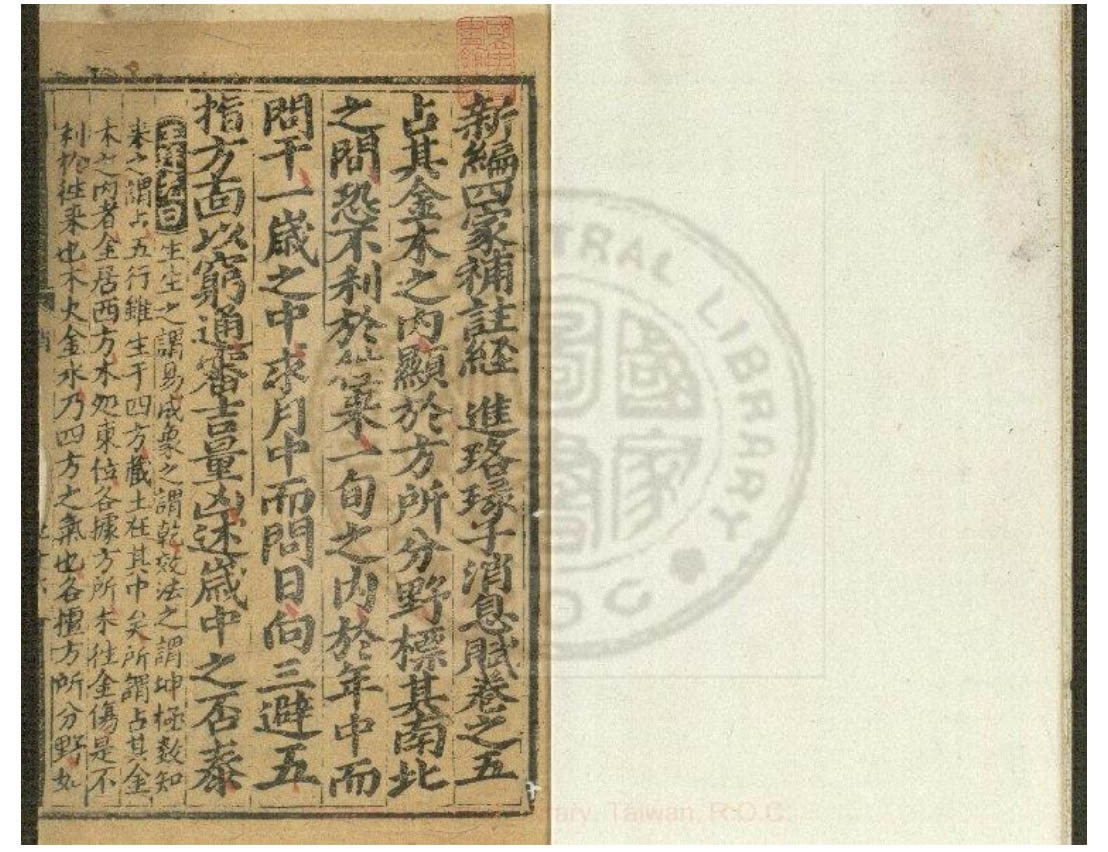 新編四家補註経 進珞琭子消息賦卷之五
占其金木之内顯於方所分野標其南北
之間恐不利於往來一旬之内於年中而
問干一歲之中求月中而問日向三避五
指方面以窮通審吉量凶述歲中之否泰
王廷光曰生生之謂易成象之謂乾效法之謂坤極数知
来之謂占五行雖生于四方藏土在其中矣所謂占其金
木之内者金居西方木処東位各據方所木往金傷是不
利於往来也木火金水乃四方之氣也各擅方所分野如
CENTRAL LIBRARY
R.O.C.
國家圖書
Library, Taiwan, R.O.C.